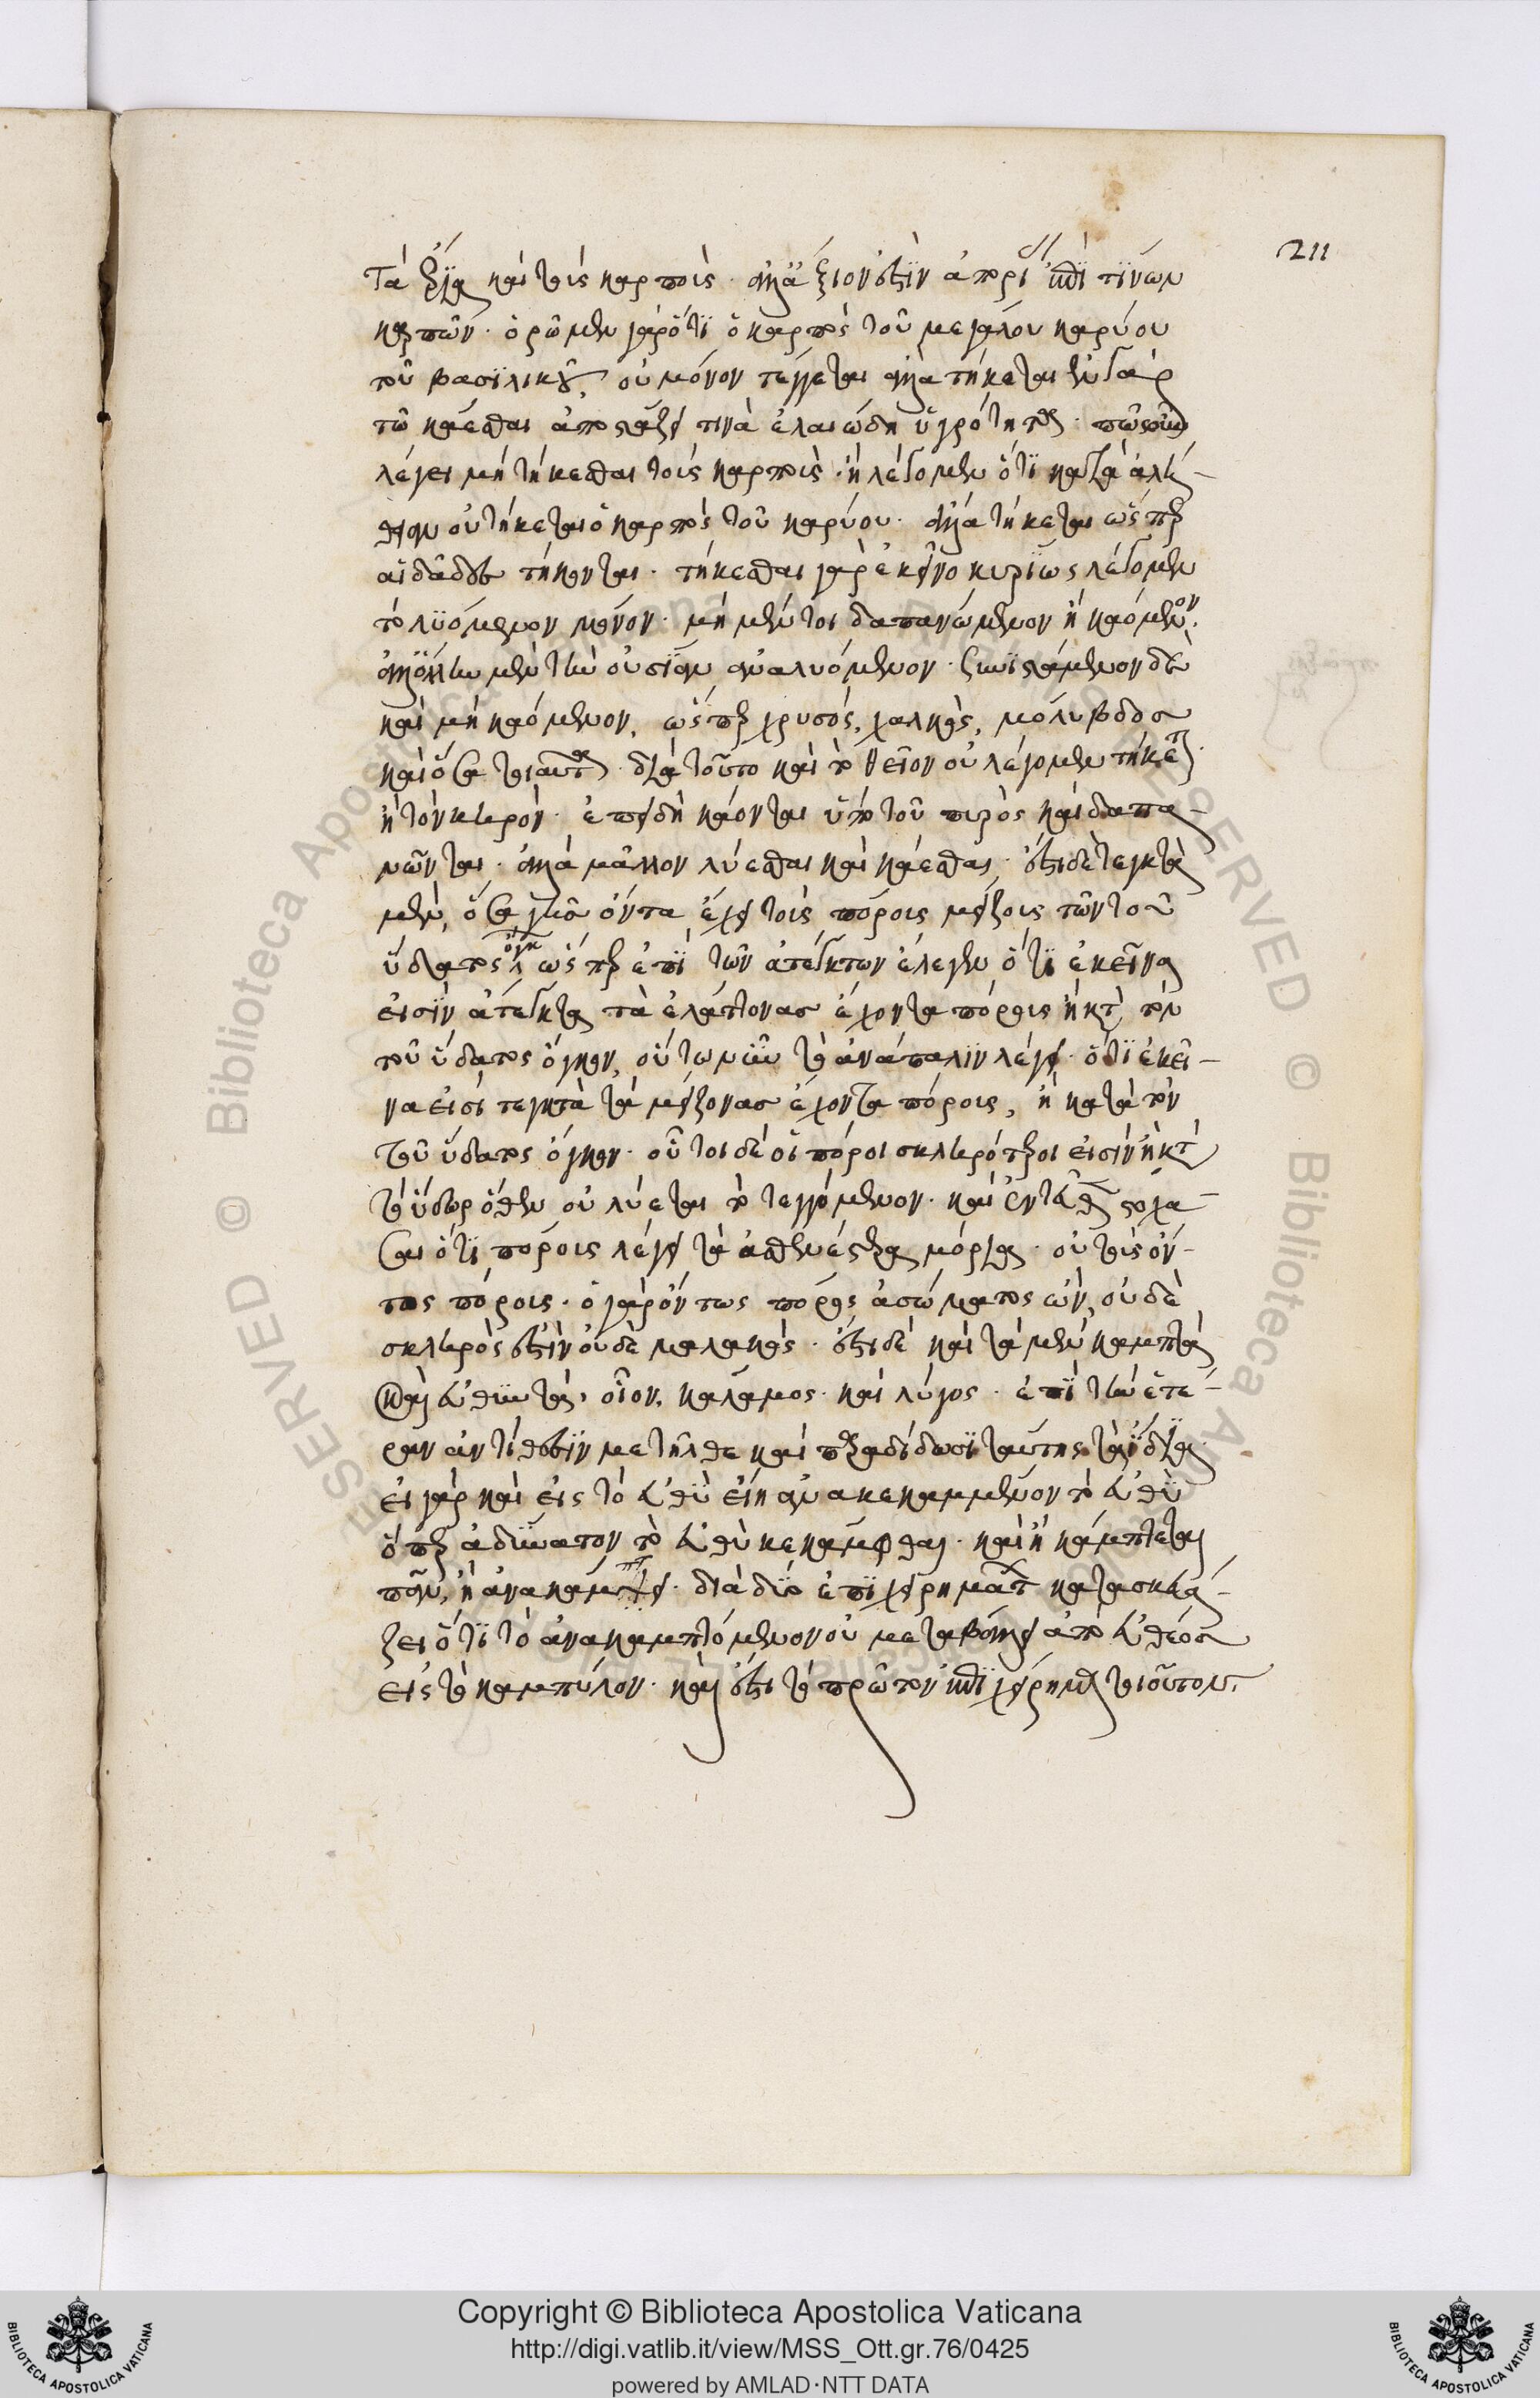 211
τὰ ἔρια καὶ τοὺς καρπούς. ἀλλ' ἄξιόν ἐστιν ἀπορῆσαι ἐπί τινων
καρπῶν. ὁρῶμεν γὰρ ὅτι ὁ καρπὸς τοῦ μεγάλου καρύου
τοῦ βασιλικοῦ, οὐ μόνον τέγγεται ἀλλὰ τήκεται ἐν γὰρ
τῷ κάεσθαι ἀποστάζει τινὰ ἐλαιώδη ὑγρότητα. πῶς οὖν
λέγει μὴ τήκεσθαι τοὺς καρπούς. ἢ λέγομεν ὅτι κατὰ ἀλή-
θειαν οὐ τήκεται ὁ καρπὸς τοῦ καρύου. ἀλλὰ τήκεται ὥσπερ
αἱ δᾶδες τήκονται. τήκεσθαι γὰρ ἐκεῖνο κυρίως λέγομεν
τὸ λυόμενον μόνον. μὴ μέντοι δαπανώμενον ἢ καόμενον.
ἀλλ' ὅλην μὲν τὴν οὐσίαν ἀναλυόμενον. συνιστάμενον δὲ
καὶ μὴ καόμενον, ὥσπερ χρυσός, χαλκός, μόλυβδος
καὶ ὅσα τοιαῦτα. διὰ τοῦτο καὶ τὸ θεῖον οὐ λέγομεν τήκεσθαι
ἢ τὸν κηρόν. ἐπειδὴ κάονται ὑπὸ τοῦ πυρὸς καὶ δαπα-
νῶνται. ἀλλὰ μᾶλλον λύεσθαι καὶ κάεσθαι. ἔστι δὲ τεγκτὰ
μὲν, ὅσα γεηρὰ ὄντα ἔχει τοὺς πόρους μείζους τῶν τοῦ
ὕδατος ὄγκων ὥσπερ ἐπὶ τῶν ἀτέγκτων ἔλεγεν ὅτι ἐκεῖνα
εἰσὶν ἄτεγκτα τὰ ἐλάττονας ἔχοντα πόρους ἢ κατὰ τὸν
τοῦ ὕδατος ὄγκον, οὕτω νῦν τὸ ἀνάπαλιν λέγει. ὅτι ἐκεῖ-
να εἰσὶ τεγκτὰ τὰ μείζονας ἔχοντα πόρους, ἢ κατὰ τὸν
τοῦ ὕδατος ὄγκον. οὗτοι δὲ οἱ πόροι σκληρότεροι εἰσὶν ἢ κατὰ
τὸ ὕδωρ ὅθεν οὐ λύεται τὸ τεγγόμενον. καὶ ἐνταῦθα στοχά-
σαι ὅτι πόρους λέγει τὰ ἀσθενέστερα μόρια. οὐ τοὺς ὄν-
τας πόρους. ὁ γὰρ ὄντως πόρος ἀσώματος ὢν, οὐδὲ
σκληρός ἐστιν οὐδὲ μαλακός. ἔστι δὲ καὶ τὰ μὲν καμπτὰ
καὶ εὐθυντὰ, οἷον, κάλαμος. καὶ λύγος. ἐπὶ τὴν ἑτέ-
ραν ἀντίθεσιν μετῆλθε καὶ παραδίδωσι ταύτης τὰ ἴδια.
εἰ γὰρ καὶ εἰς τὸ εὐθὺ εἴη ἀνακεκαμμένον τὸ εὐθὺ
ὅπερ ἀδύνατον τὸ εὐθὺ κεκάμφθαι. καὶ ἢ κάμπτεται
πάλιν, ἢ ἀνακάμπτει. διὰ δύο ἐπιχειρημάτων κατασκευά-
ζει ὅτι τὸ ἀνακαμπτόμενον οὐ μεταβάλλει ἀπὸ εὐθέος
εἰς τὸ καμπύλον. καὶ ἔστι τὸ πρῶτον ἐπιχείρημα τοιοῦτον.
Copyright © Biblioteca Apostolica Vaticana
http://digi.vatlib.it/view/MSS_Ott.gr.76/0425
powered by AMLAD·NTT DATA